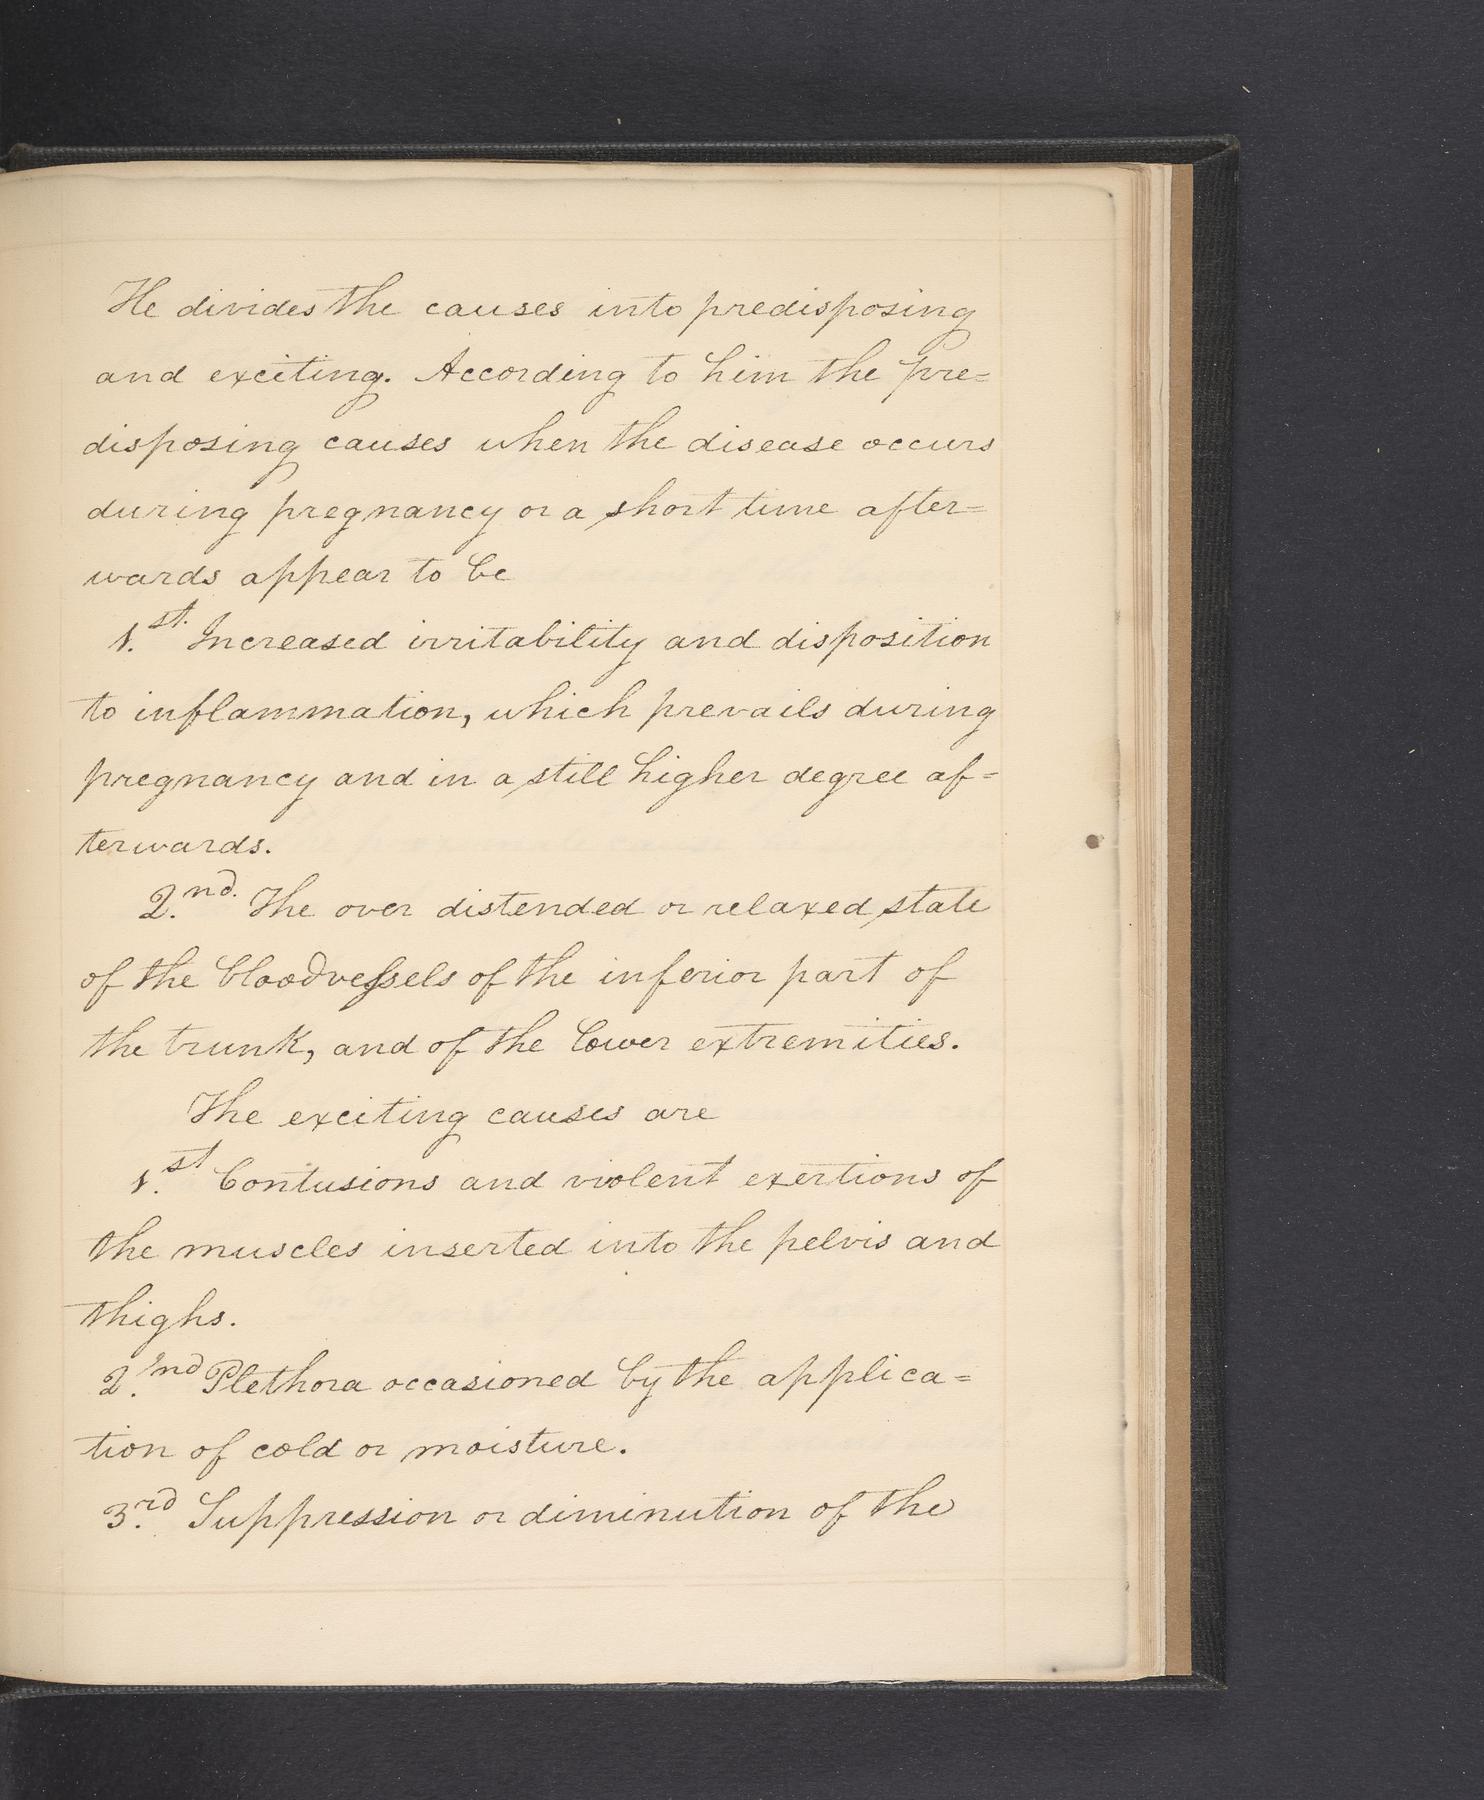 He divides the causes into predisposing
and exciting. According to him the pre=
disposing causes when the disease occurs
during pregnancy or a short time after=
wards appear to be
1.st. Increased irritability and disposition
to inflammation, which prevails during
pregnancy and in a still higher degree af=
terwards.
2.nd. The over distended or relaxed state
of the bloodveſsels of the inferior part of
the trunk, and of the lower extremities.
The exciting causes are
1.st Contusions and violent exertions of
the muscles inserted into the pelvis and
thighs.
2.nd Plethora occasioned by the applica=
tion of cold or moisture.
3.rd Suppression or diminution of the